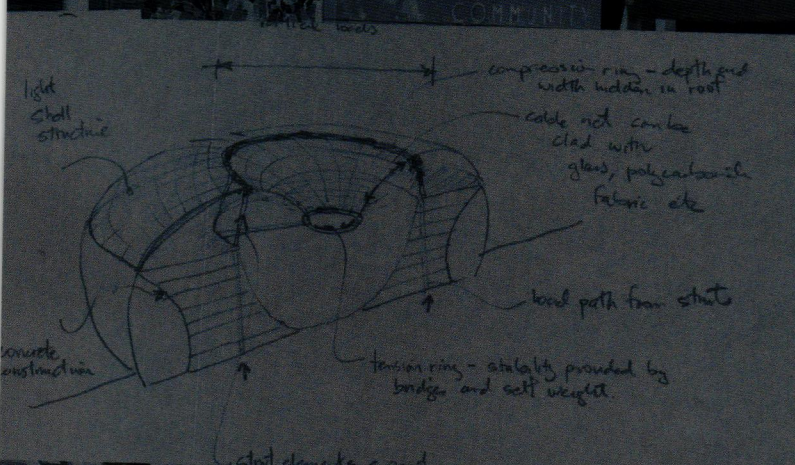 COMMUNITY
loads
compression ring - depth and
width hidden in roof
light
shell
structure
cable net can be
clad with
glass, polycarbonate
fabric etc
load path from struts
concrete
construction
tension ring - stability provided by
bridges and self weight.
strut elements around